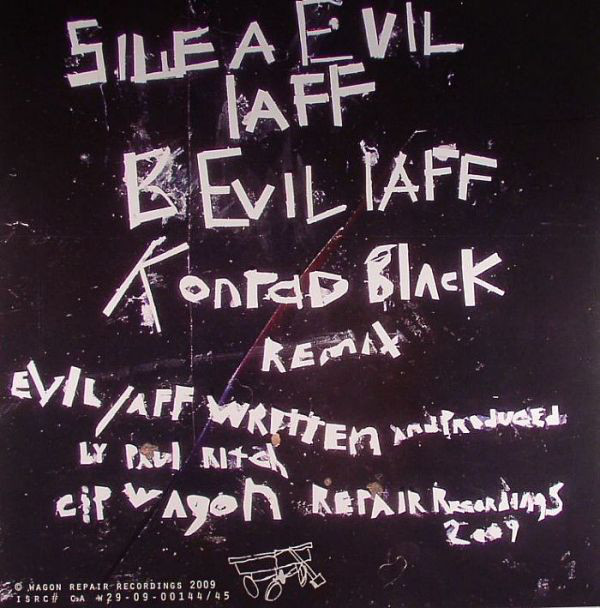 SIDE A EVIL
LAFF
B EVIL LAFF
Konrad Black
REMIX
EVIL LAFF WRITTEN and PRODUCED
by PAUL RITCH
C&P WAGON REPAIR Recordings
2009
© WAGON REPAIR RECORDINGS 2009
ISRC# CA W29-09-00144/45